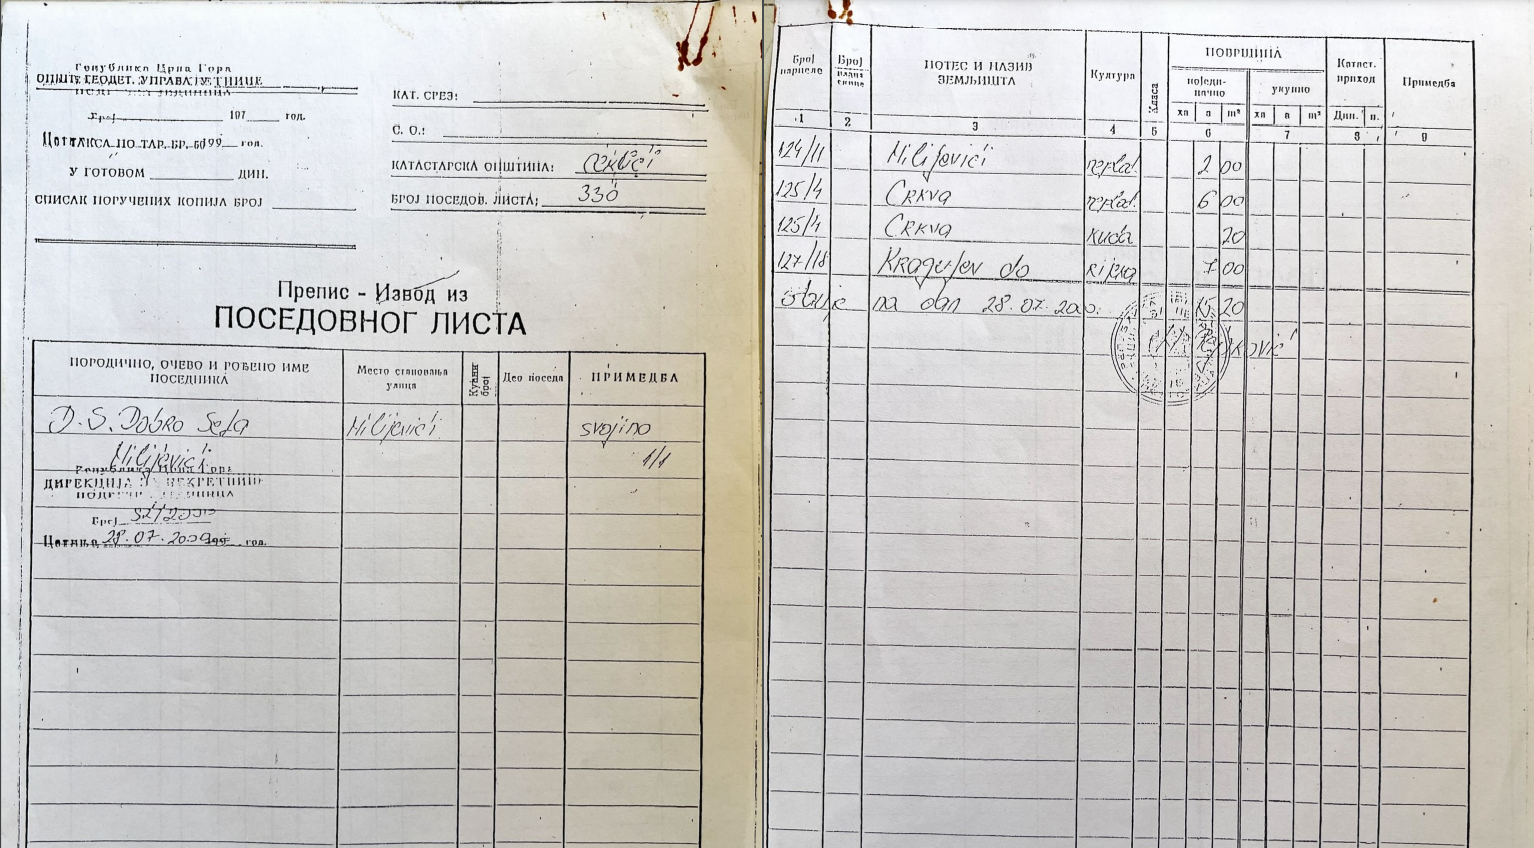 Република Црна Гора
ОПШТЕ ГЕОДЕТ. УПРАВА
107 год.
ТАКСА ПО ТАР. БР. год.
У ГОТОВОМ ДИН.
СПИСАК ПОРУЧЕНИХ КОПИЈА БРОЈ
КАТ. СРЕЗ:
С. О.:
КАТАСТАРСКА ОПШТИНА:
БРОЈ ПОСЕДОВ. ЛИСТА: 330
Препис - Извод из
ПОСЕДОВНОГ ЛИСТА
ПОРОДИЧНО, ОЧЕВО И РОЂЕНО ИМЕ ПОСЕДНИКА
Место становања улица
Кућни број
Део поседа
ПРИМЕДБА
D.S. Dobro Sela Milijevići svojina
Milijevići 1/1
Република Црна Гора
ДИРЕКЦИЈА НЕКРЕТНИНЕ
Број
Цетиње 28.07.2000 год.
Број парцеле
Број
ПОТЕС И НАЗИВ ЗЕМЉИШТА
Култура
Класа
ПОВРШИНА
поједи-
начно
укупно
ха а m² ха а m²
Катаст. приход
Дин. п.
Примедба
1 2 3 4 5 6 7 8 9
124/11 Milijevići 2 00
125/4 Crkva 6 00
125/4 Crkva kuća 20
127/18 Kragujev do 7 00
stanje na dan 28.07.200. 15 20